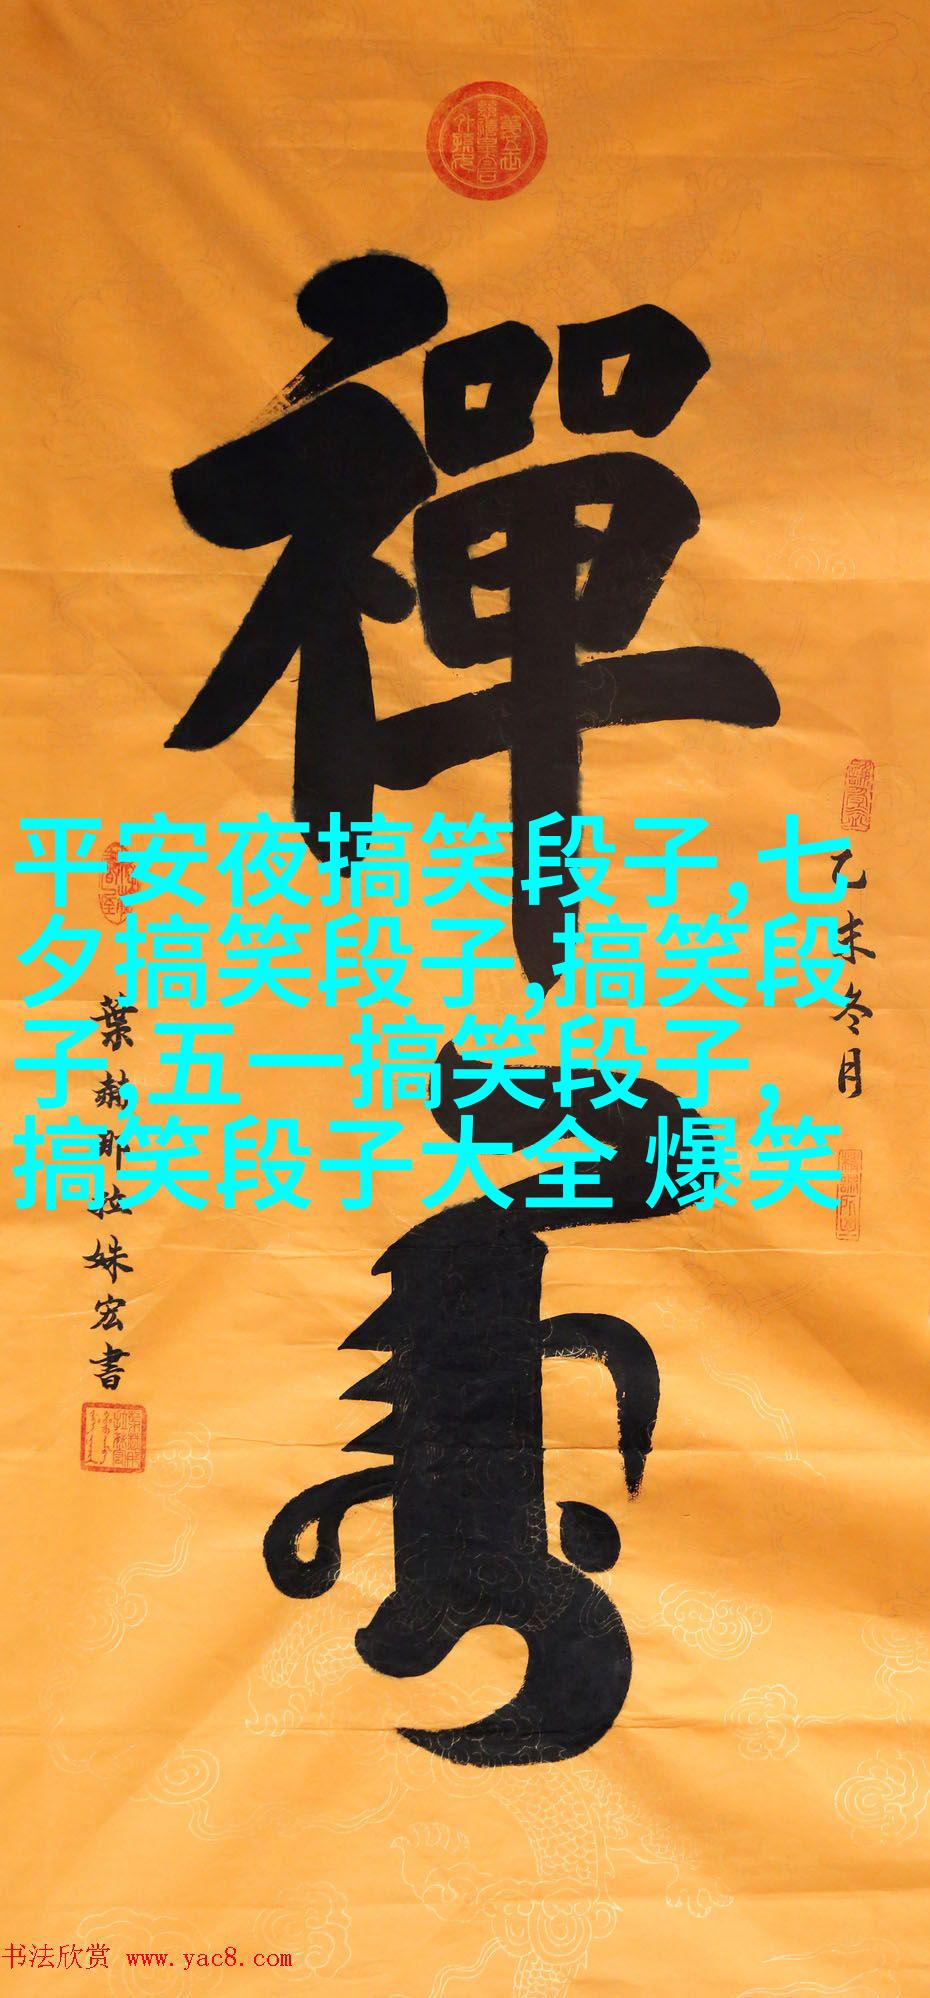 禪
乙未冬月
葉赫那拉姝宏書
平安夜搞笑段子,七
夕搞笑段子,搞笑段
子,五一搞笑段子,
搞笑段子大全 爆笑
书法欣赏 www.yac8.com